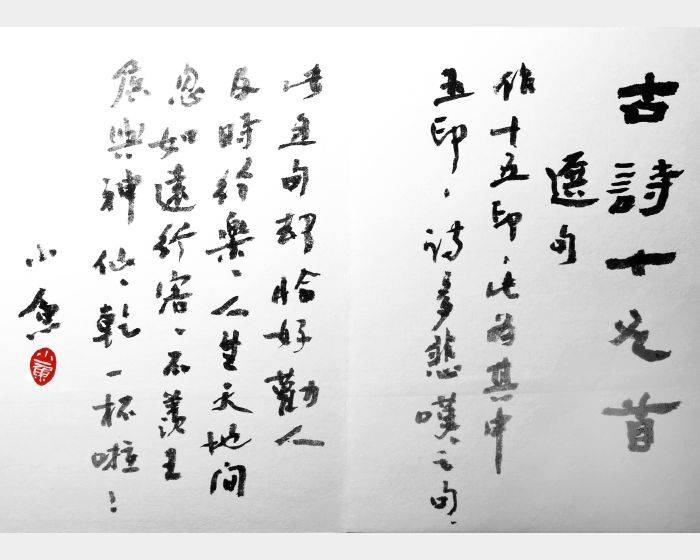 古詩十九首
選句
十五印，此為其中
五印，詩多悲嘆之句，
此五句恰好勸人
及時行樂，人生天地间
忽如遠行客，不羨王
侯與神仙，乾一杯啦！
小魚